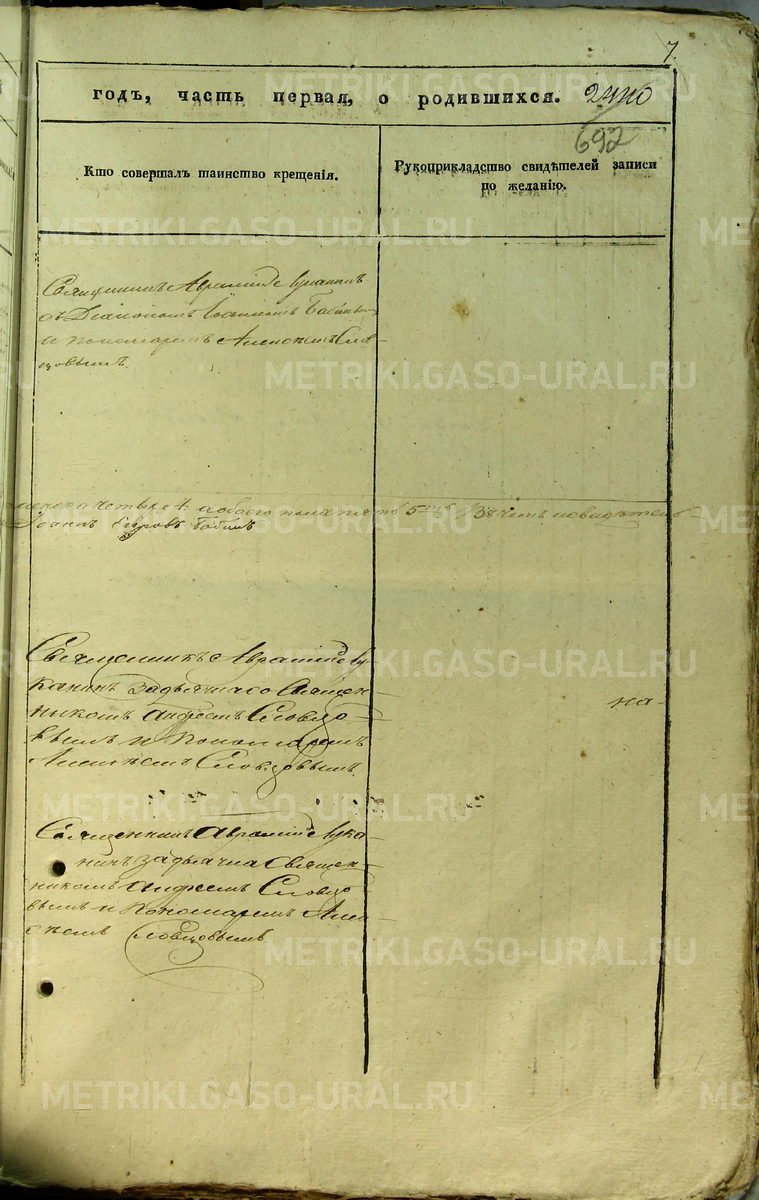 7.
годъ, часть первая, о родившихся.
692
Кто совершалъ таинство крещенія.
Рукоприкладство свидѣтелей записи по желанію.
Священникъ Аврамій Луканинъ
съ Діакономъ Іоанномъ Бабин
и пономаремъ Алексѣемъ Сло-
вцовымъ.
четыре 4. а обоего пола пять 5ть
Іоаннъ Егоровъ Бабинъ
Священникъ Аврамій Лу-
канинъ за дьячка со Священ-
никомъ Андреемъ Словцо-
вымъ и пономаремъ
Алексѣемъ Словцовымъ.
на-
Священникъ Аврамій Лука-
нинъ за дьячка Священ-
никомъ Андреемъ Словцо
вымъ и Пономаремъ Але-
ксѣемъ Словцовымъ
METRIKI.GASO-URAL.RU